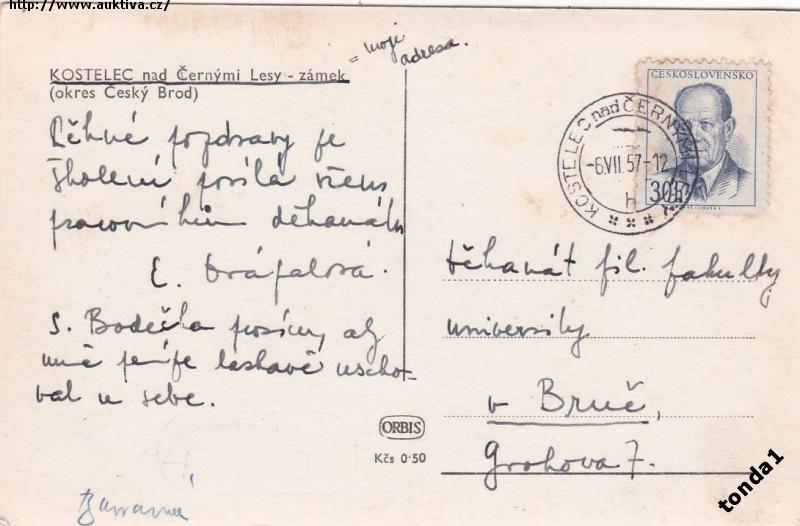 http://www.auktiva.cz/
= moje
adresa.
KOSTELEC nad Černými Lesy - zámek
(okres Český Brod)
Pěkné pozdravy ze
školení posílá všem
pracovníkům děkanátu
E. Drápalová.
S. Bodečka prosím, aby
mně peníze laskavě uscho-
val u sebe.
ČESKOSLOVENSKO
30h
KOSTELEC nad ČERNÝMI
-6.VII.57-12
h
Děkanát fil. fakulty
university
v Brně,
Grohova 7.
ORBIS
Kčs 0·50
tonda1